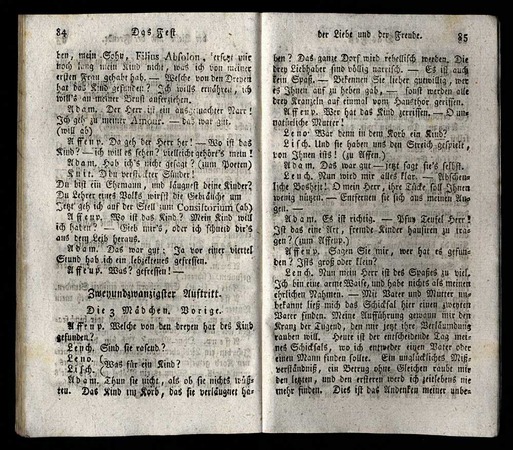 84 Das Fest
ben, mein Sohn, Filius Absolon, ersetzt mir
noch lang mein Kind nicht, was ich von meiner
ersten Frau gehabt hab. — Welche von den Dreyen
hat das Kind gefunden? Ich wills ernähren, ich
will's an meiner Brust auferziehen.
Adam. Der Herr ist ein ausgemachter Narr!
Ich geh zu meiner Amour. — das war gut.
(will ab)
Affenp. Da geh der Herr her! — Wo ist das
Kind? — ich will es sehen? vielleicht gehört's mein!
Adam. Hab ich's nicht gesagt? (zum Poeten)
Knit. Du verstockter Sünder!
Du bist ein Ehemann, und läugnest deine Kinder?
Du Lehrer eines Volks wirfst die Gebräuche um
Jetzt geh ich auf der Stell zum Consistorium (ab)
Affenp. Wo ist das Kind? Mein Kind will
ich haben? — Gieb mir's, oder ich schneid dir's
aus dem Leib heraus.
Adam. Das war gut. Ja vor einer viertel
Stund hab ich ein lebzeltenes gefressen.
Affenp. Was? gefressen! —
Zweyundzwanzigster Auftritt.
Die 3 Mädchen. Vorige.
Affenp. Welche von den dreyen hat das Kind
gefunden?
Lench. Sind sie rasend?
Leno.
Lisch. Was für ein Kind?
Adam. Thun sie nicht, als ob sie nichts wüß-
ten. Das Kind im Korb, das sie verläugnet ha-
der Liebe und der Freude. 85
ben? Das ganze Dorf wird rebellisch werden. Die
drey Liebhaber sind völlig narrisch. — Es ist auch
kein Spaß. — Bekennen Sie lieber gutwillig, wer
es Ihnen auf zu heben gab, — sonst werden alle
drey Kranzeln auf einmal vom Hausthor gerissen.
Affenp. Wer hat das Kind zerrissen. — O un-
natürliche Mutter!
Leno. War denn in dem Korb ein Kind?
Lisch. Und sie haben uns den Streich gespielt,
von Ihnen ists! (zu Affen.)
Adam. Das war gut — jetzt sagt sie's selbst.
Lench. Nun wird mir alles klar. — Abscheu-
liche Bosheit! O mein Herr, ihre Tücke soll Ihnen
wenig nützen. — Entfernen sie sich aus meinen Au-
gen. —
Adam. Es ist richtig. — Pfuy Teufel Herr!
Ist das eine Art, fremde Kinder hausiren zu tra-
gen? (zum Affenp.)
Affenp. Sagen Sie mir, wer hat es gefun-
den? Ists groß oder klein?
Lench. Nun mein Herr ist des Spaßes zu viel.
Ich bin eine arme Waise, und habe nichts als meinen
ehrlichen Nahmen. — Mit Vater und Mutter un-
bekannt ließ mich das Schicksal hier einen zweyten
Vater finden. Meine Aufführung gewann mir den
Kranz der Tugend, den mir jetzt ihre Verläumdung
rauben will. Heute ist der entscheidende Tag mei-
nes Schicksals, wo ich entweder einen Vater oder
einen Mann finden sollte. Ein unglückliches Miß-
verständniß, ein Betrug ohne Gleichen raubt mir
den letzten, und den ersteren werd ich zeitlebens nie
mehr finden. Dies ist das Andenken meiner unbe-